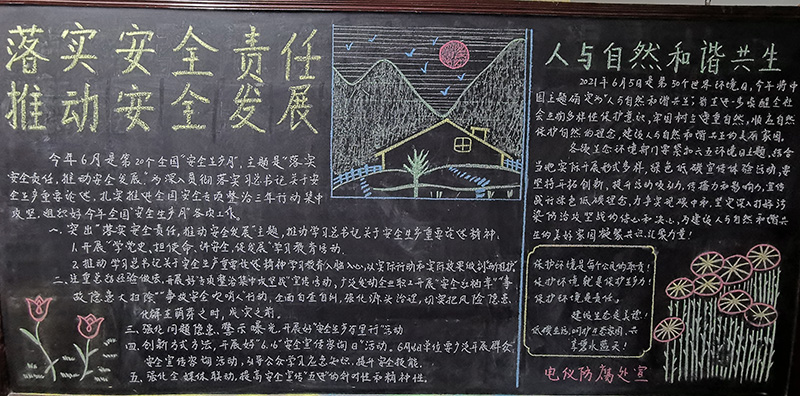 落实安全责任
推动安全发展
今年6月是第20个全国"安全生产月",主题是"落实
安全责任,推动安全发展"。为深入贯彻落实习总书记关于安
全生产重要论述,扎实推进全国安全专项整治三年行动集中
攻坚,组织好今年全国"安全生产月"各项工作。
一、突出"落实安全责任,推动安全发展"主题,推动学习总书记关于安全生产重要论述精神。
1.开展"学党史、担使命、讲安全、促发展"学习教育活动。
2.推动学习总书记关于安全生产重要论述精神学习教育入脑入心,以实际行动和实际效果做到"两个维护"
二、注重总结经验做法,开展好专项整治集中攻坚战"宣传活动,广泛发动企业职工开展"安全五个率""事
故隐患大扫除""争做安全吹哨人"行动,全面自查自纠,强化源头治理,切实把风险隐患
化解至萌芽之时,成灾之前。
三、强化问题隐患、警示曝光,开展好安全生产万里行"活动
四、创新方式方法,开展好"6.16"安全宣传咨询日"活动。6月16日单位要广泛开展群众
安全宣传咨询活动,引导公众学习应急知识,提升安全技能。
五、强化全媒体联动,提高安全宣传"五进"的针对性和精神性。
人与自然和谐共生
2021年6月5日是第50个世界环境日,今年将中
国主题确定为"人与自然和谐共生",旨在进一步唤醒全社
会生物多样性保护意识,牢固树立尊重自然,顺应自然
保护自然的理念,建设人与自然和谐共生的美丽家园。
各级生态环境部门要紧扣六五环境日主题,结合
当地实际开展形式多样,绿色低碳宣传体验活动,要
坚持开拓创新,提升活动吸引力,传播力和影响力,宣传
践行绿色低碳理念,力争实现碳中和,坚定深入打好污
染防治攻坚战的信心和决心,为建设人与自然和谐共
生的美好家园凝聚共识,汇聚力量!
保护环境是每个公民的职责!
保护环境就是保护生产力!
保护环境是责任。
建设生态是美德!
低碳生活,呵护生态家园,共
享碧水蓝天!
电仪防腐处宣